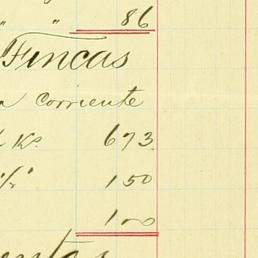 " " 86
Fincas
a corriente
K.º 673
150
100
entas